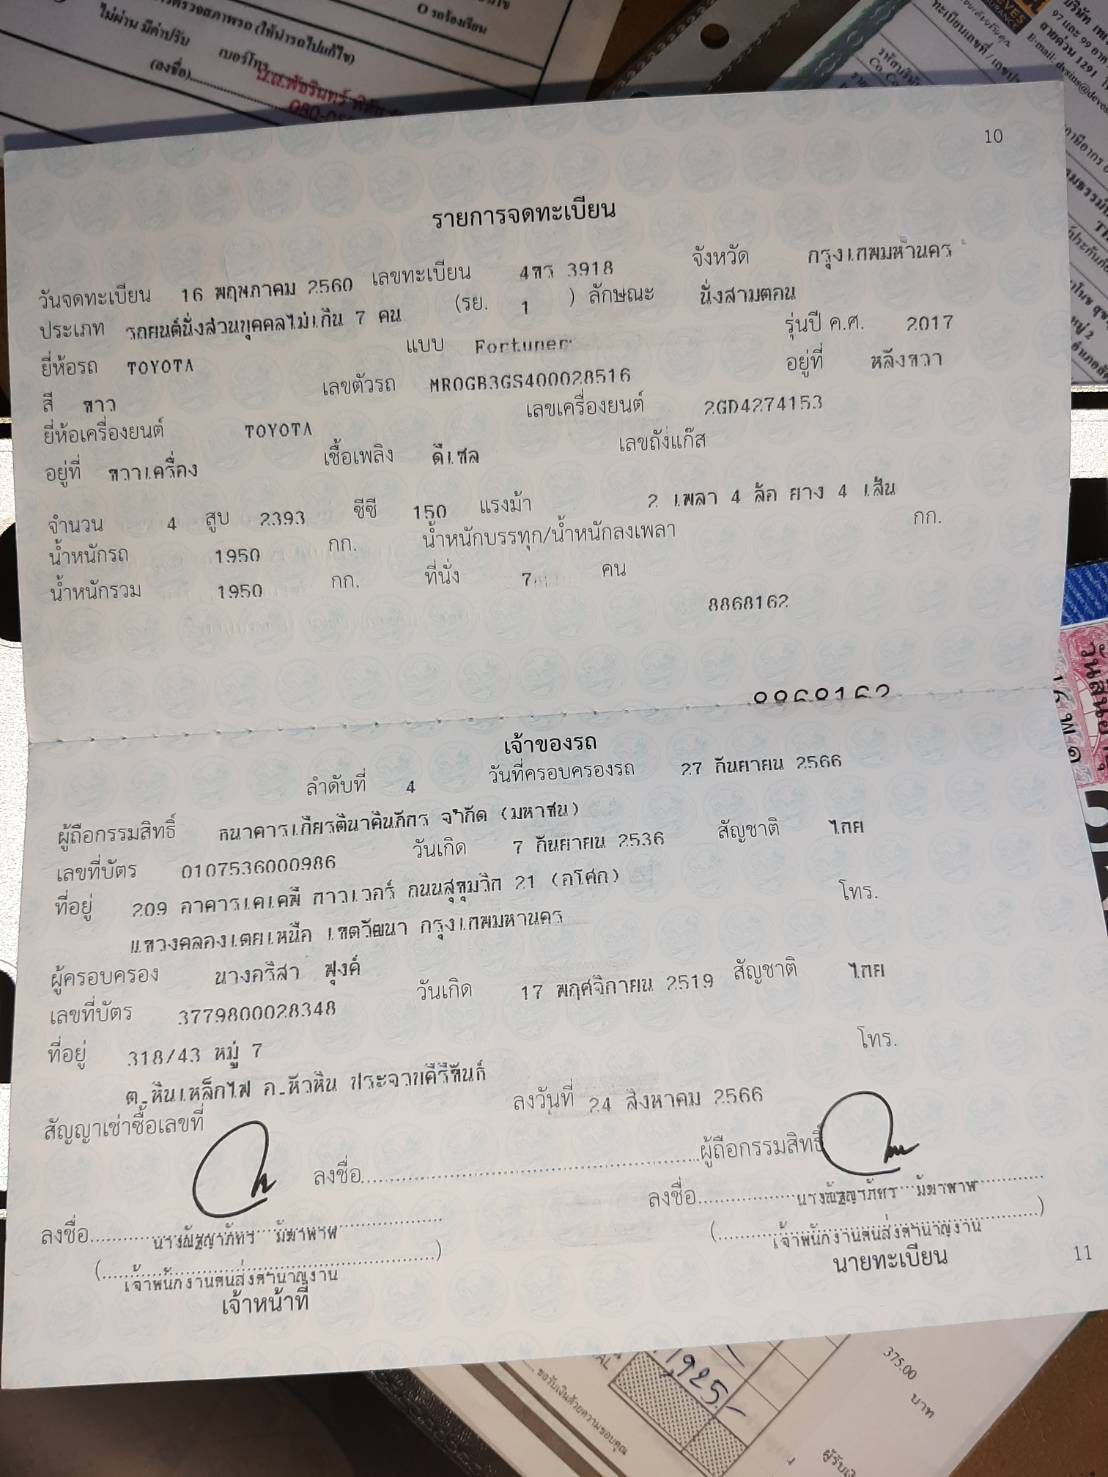 ตรวจสภาพรถ (ให้นำรถไปแก้ไข)
O รอร้องเรียน
ไม่ผ่าน มีค่าปรับ เบอร์โทร
(ลงชื่อ)
10
รายการจดทะเบียน
วันจดทะเบียน 16 พฤษภาคม 2560 เลขทะเบียน 3918 จังหวัด กรุงเทพมหานคร
ประเภท รถยนต์นั่งส่วนบุคคลไม่เกิน 7 คน (รย. 1 ) ลักษณะ นั่งสามตอน
ยี่ห้อรถ TOYOTA แบบ Fortuner รุ่นปี ค.ศ. 2017
สี ขาว เลขตัวรถ MR0GB3GS400028516 อยู่ที่ หลังขวา
ยี่ห้อเครื่องยนต์ TOYOTA เลขเครื่องยนต์ 2GD4274153
อยู่ที่ ขวาเครื่อง เชื้อเพลิง ดีเซล เลขถังแก๊ส
จำนวน 4 สูบ 2393 ซีซี 150 แรงม้า 2 เพลา 4 ล้อ ยาง 4 เส้น
น้ำหนักรถ 1950 กก. น้ำหนักบรรทุก/น้ำหนักลงเพลา กก.
น้ำหนักรวม 1950 กก. ที่นั่ง 7 คน
8868162
เจ้าของรถ
ลำดับที่ 4 วันที่ครอบครองรถ 27 กันยายน 2566
ผู้ถือกรรมสิทธิ์ ธนาคารเกียรตินาคินภัทร จำกัด (มหาชน)
เลขที่บัตร 0107536000986 วันเกิด 7 กันยายน 2536 สัญชาติ ไทย
ที่อยู่ 209 อาคารเคเคพี ทาวเวอร์ ถนนสุขุมวิท 21 (อโศก) โทร.
แขวงคลองเตยเหนือ เขตวัฒนา กรุงเทพมหานคร
ผู้ครอบครอง นางอริสา ฟุงค์
เลขที่บัตร 3779800028348 วันเกิด 17 พฤศจิกายน 2519 สัญชาติ ไทย
ที่อยู่ 318/43 หมู่ 7 โทร.
ต.หินเหล็กไฟ อ.หัวหิน ประจวบคีรีขันธ์
สัญญาเช่าซื้อเลขที่ ลงวันที่ 24 สิงหาคม 2566
ลงชื่อ ผู้ถือกรรมสิทธิ์
ลงชื่อ ลงชื่อ
(เจ้าพนักงานขนส่งชำนาญงาน) (เจ้าพนักงานขนส่งชำนาญงาน)
เจ้าหน้าที่ นายทะเบียน
11
1,925.-
375.00 บาท
ขอรับเงินด้วยความขอบคุณ